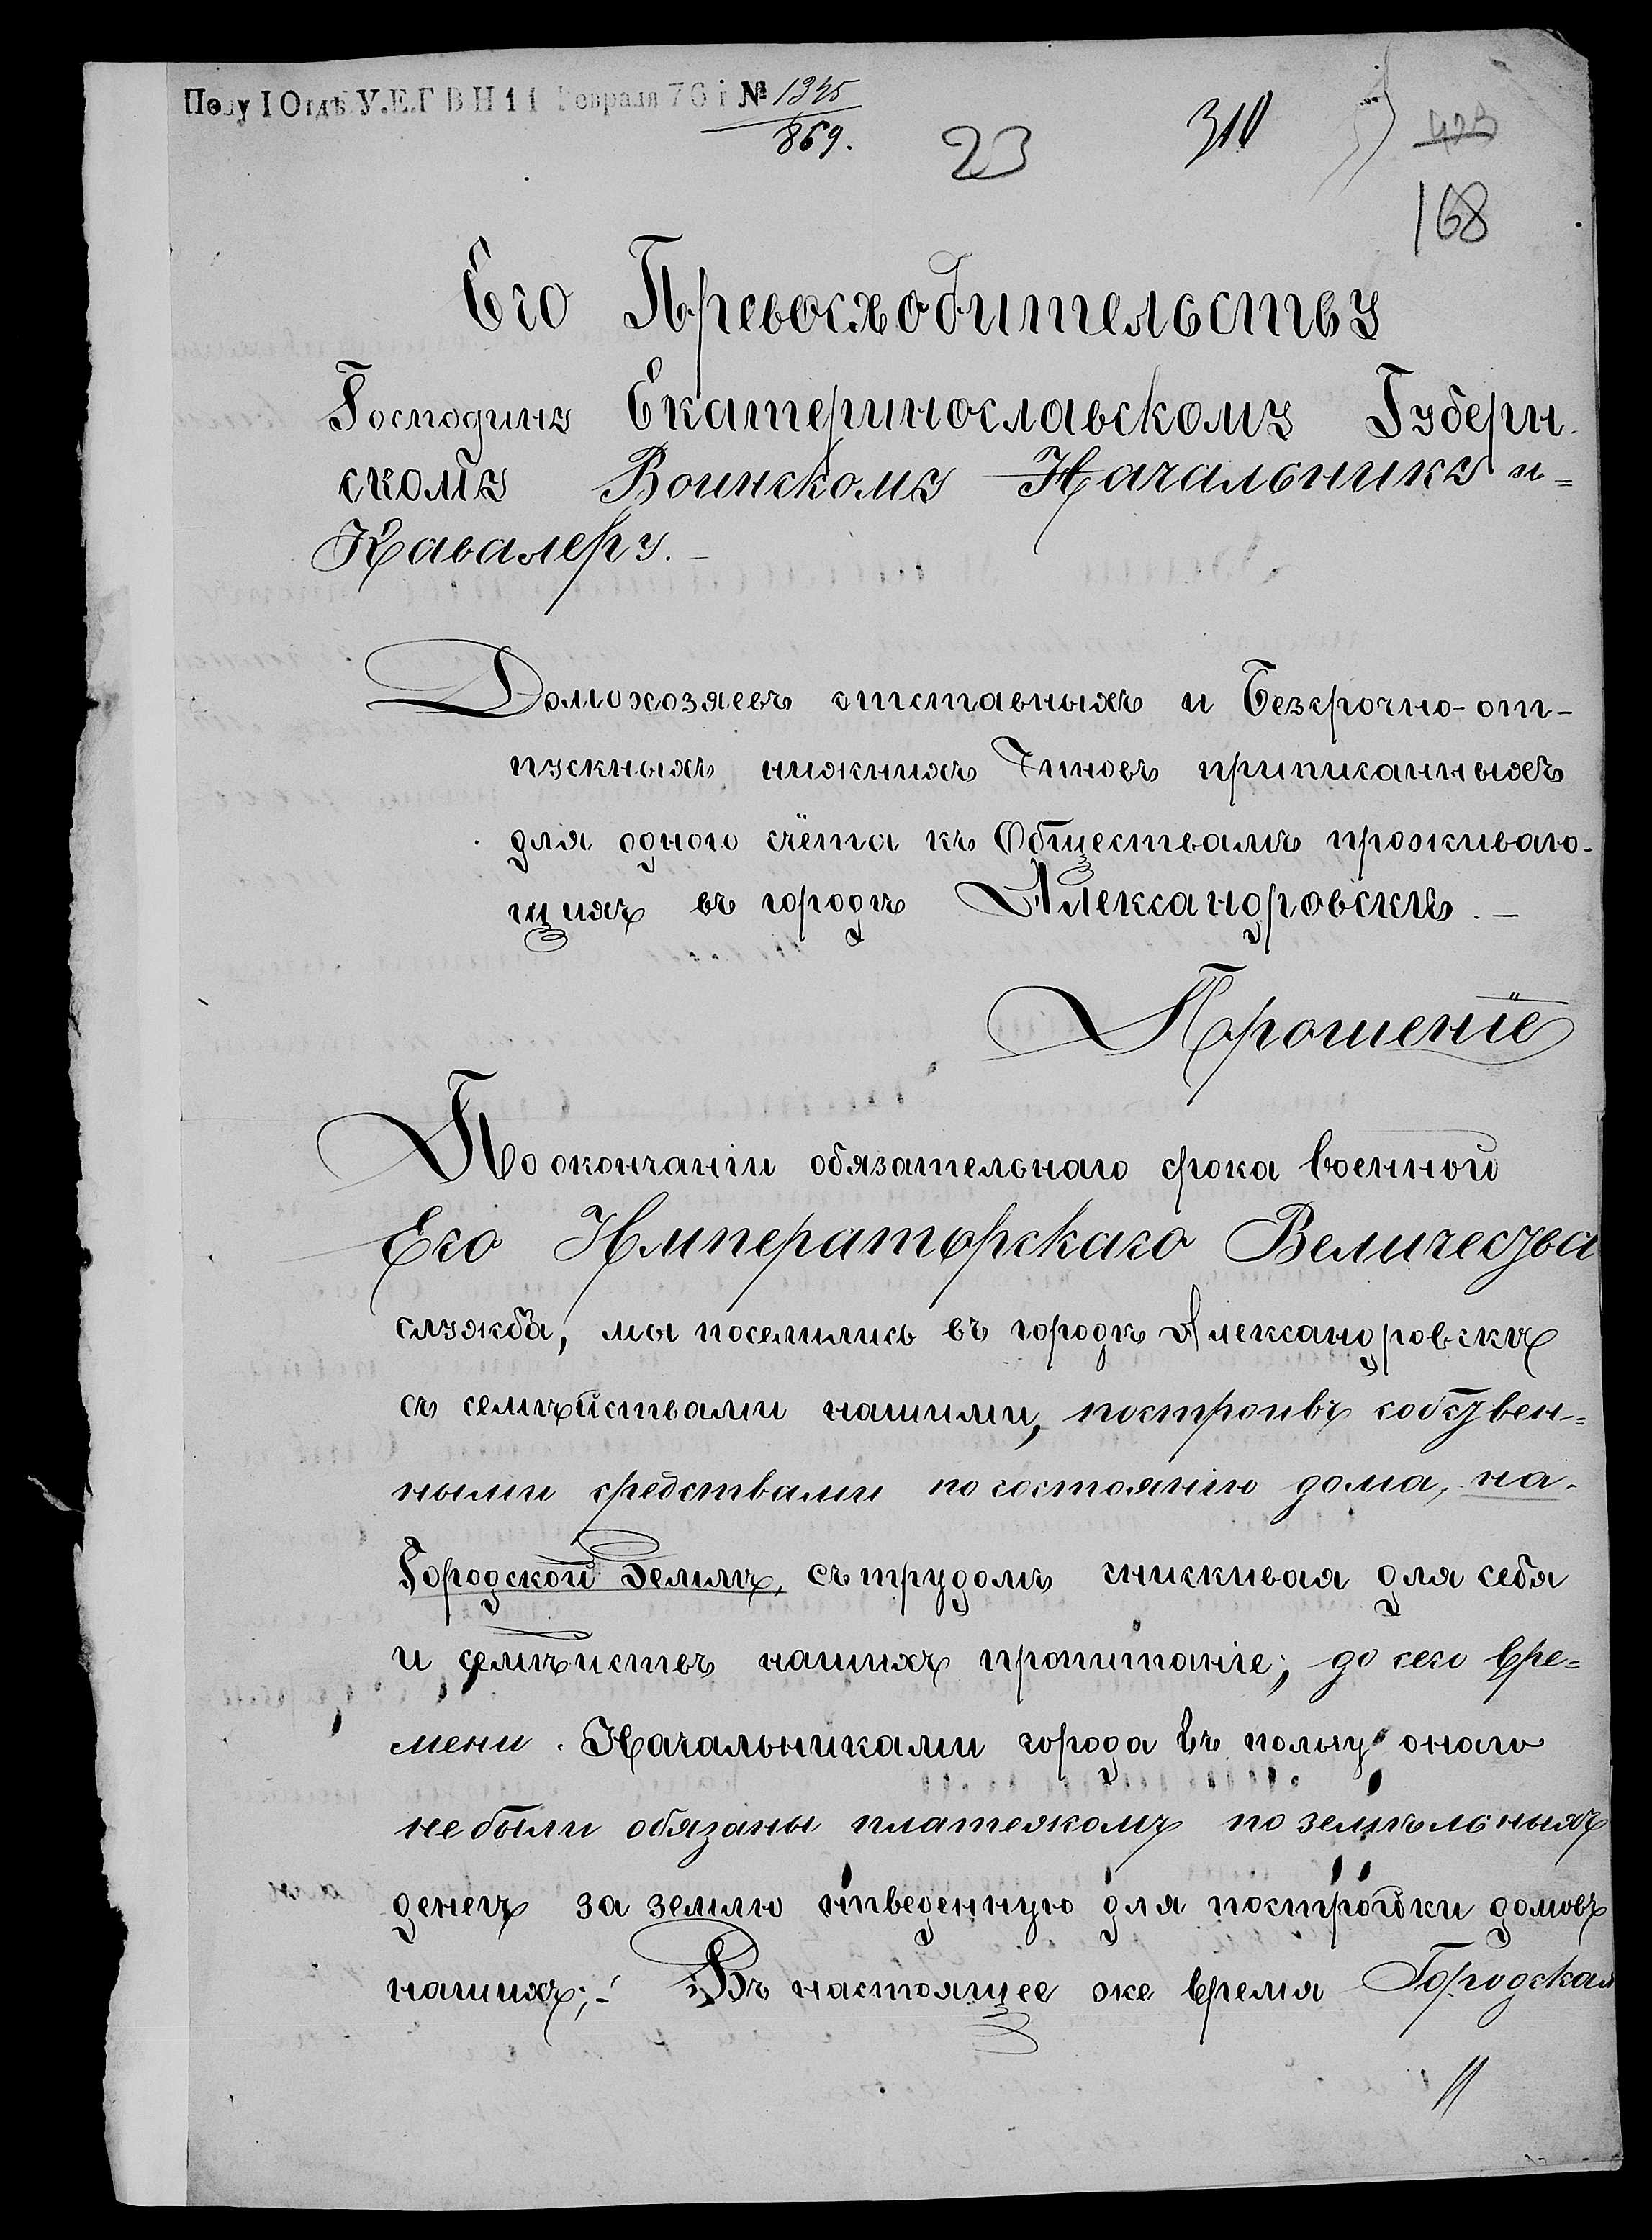 Полу I Отдѣ У.Е.Г В Н 11 Февраля 76 г № 1345
869.
23 310
168
Его Превосходительству
Господину Екатеринославскому Губерн.
скому Воинскому Начальнику и=
Кавалеру.-
Домохозяевъ отставныхъ и Безсрочно-от-
пускныхъ нижнихъ Чиновъ приписанныхъ
для одного счёта къ Обществамъ проживаю-
щихъ въ городѣ Александровскѣ.-
Прошеніе
По окончаніи обязательнаго срока военной
Его Императорскаго Величества
служба, мы поселились въ городѣ Александровскѣ
съ семѣйствами нашими, построивъ собствен-=
ными средствами по состоянію дома, на-
Городской Землѣ, съ трудомъ снискивая для себя
и семѣиствъ нашихъ пропитаніе; до сего вре=
мени. Начальниками города въ пользу онаго
не были обязаны платежомъ поземѣльныхъ
денегъ за землю отведенную для постройки домовъ
нашихъ;-! Въ настоящее же время Городская